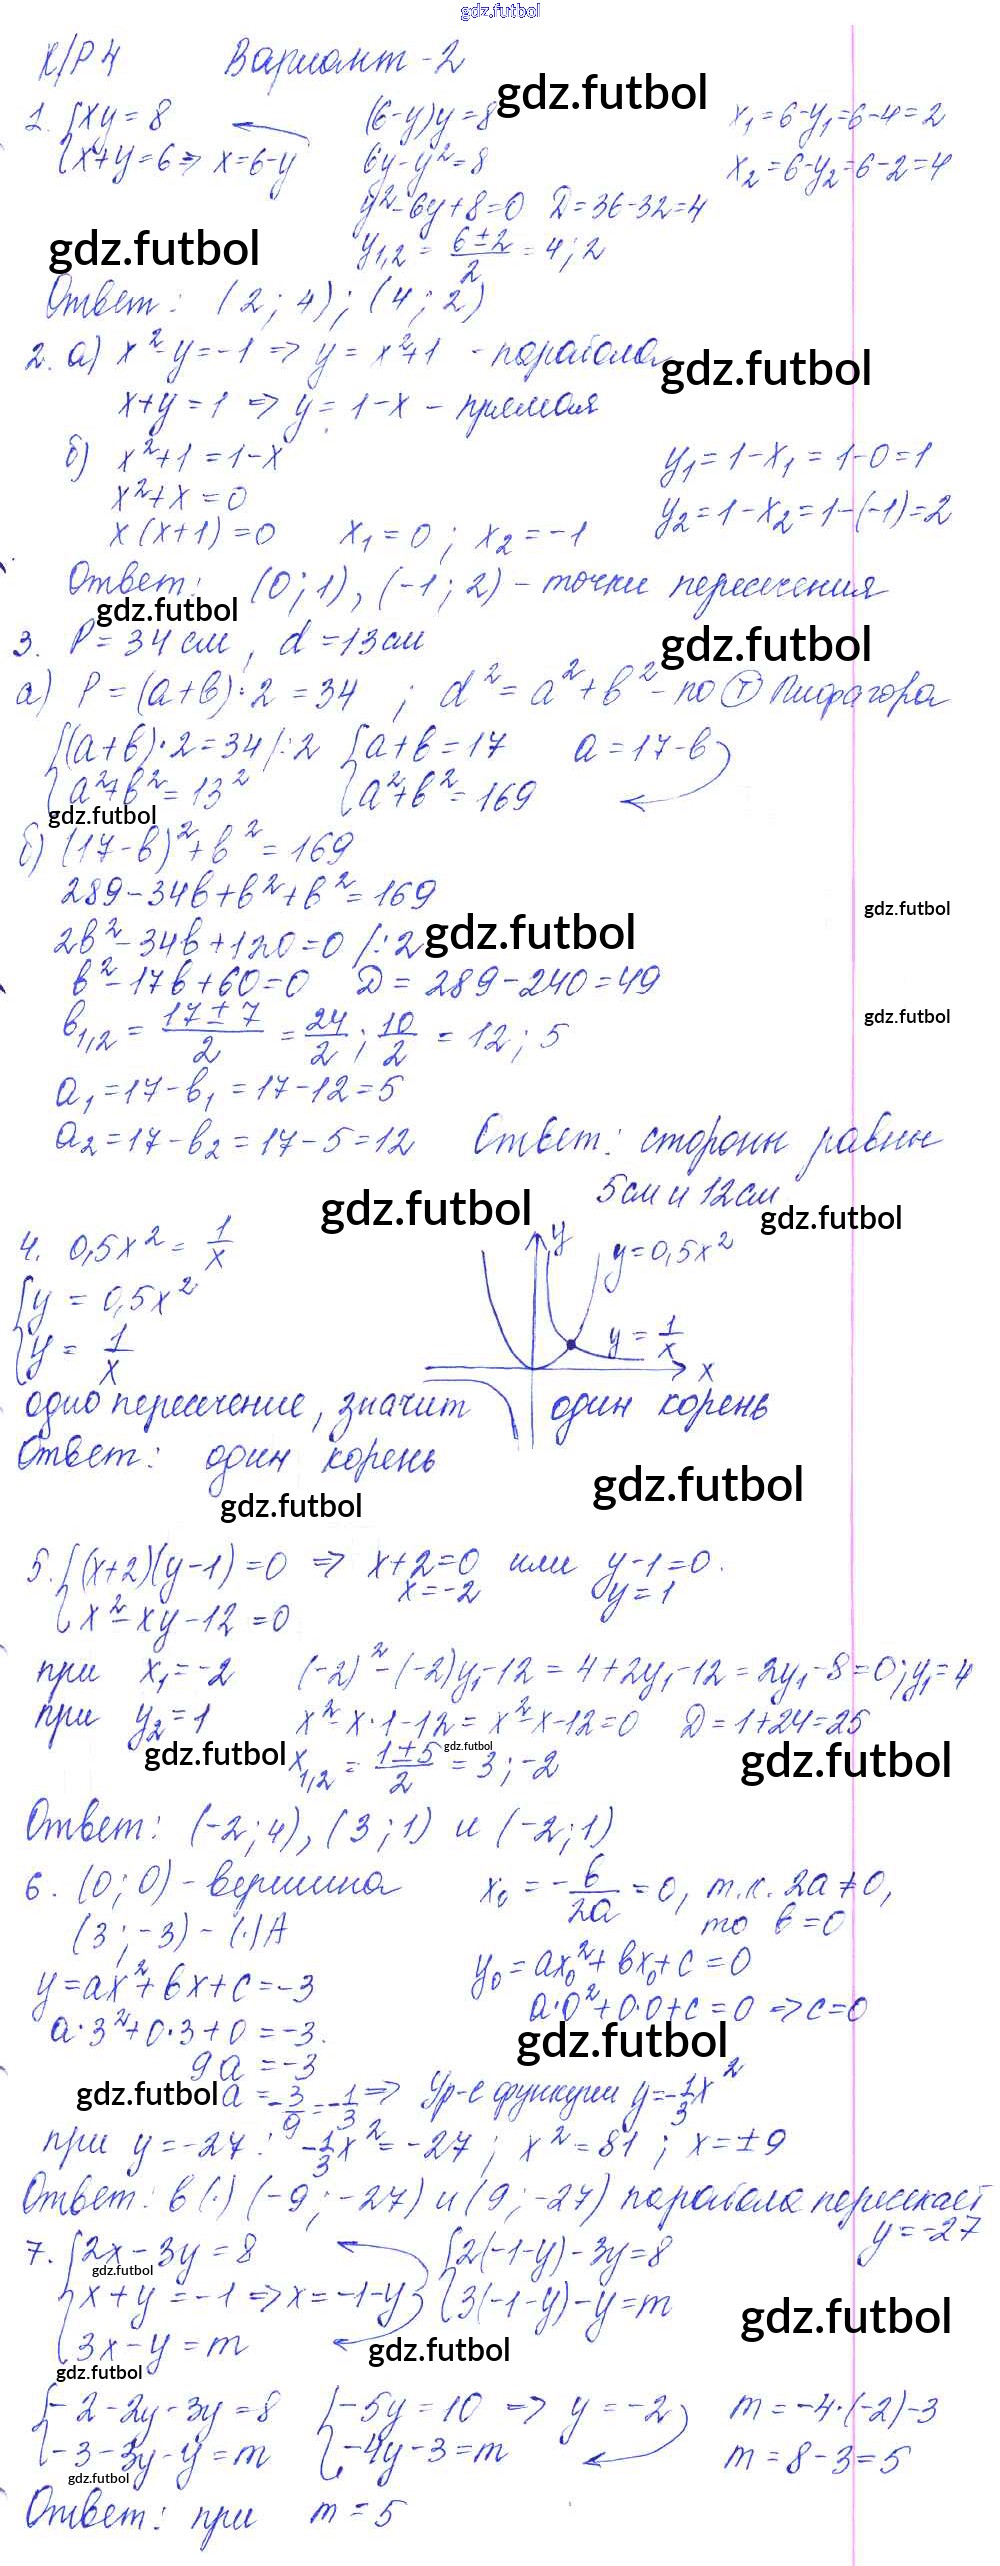 gdz.futbol
К/Р 4 Вариант - 2
gdz.futbol
1. {xy = 8 (6-y)y = 8 x₁ = 6-y₁ = 6-4 = 2
{x+y = 6 => x = 6-y 6y - y² = 8 x₂ = 6-y₂ = 6-2 = 4
y² - 6y + 8 = 0 D = 36-32 = 4
gdz.futbol
y₁,₂ = (6 ± 2)/2 = 4 ; 2
Ответ: (2 ; 4) ; (4 ; 2)
2. а) x² - y = -1 => y = x² + 1 - парабола
gdz.futbol
x + y = 1 => y = 1 - x - прямая
б) x² + 1 = 1 - x y₁ = 1 - x₁ = 1 - 0 = 1
x² + x = 0 y₂ = 1 - x₂ = 1 - (-1) = 2
x(x+1) = 0 x₁ = 0 ; x₂ = -1
Ответ: (0 ; 1), (-1 ; 2) - точки пересечения
gdz.futbol
3. P = 34 см, d = 13 см
gdz.futbol
а) P = (a+b)·2 = 34 ; d² = a² + b² - по Т Пифагора
{(a+b)·2 = 34 /:2 {a+b = 17 a = 17 - b
{a² + b² = 13² {a² + b² = 169
gdz.futbol
б) (17-b)² + b² = 169
289 - 34b + b² + b² = 169
gdz.futbol
2b² - 34b + 120 = 0 /:2
gdz.futbol
b² - 17b + 60 = 0 D = 289 - 240 = 49
gdz.futbol
b₁,₂ = (17 ± 7)/2 = 24/2 ; 10/2 = 12 ; 5
a₁ = 17 - b₁ = 17 - 12 = 5
a₂ = 17 - b₂ = 17 - 5 = 12 Ответ: стороны равны
5 см и 12 см
gdz.futbol
gdz.futbol
4. 0,5x² = 1/x y y = 0,5x²
{y = 0,5x²
{y = 1/x y = 1/x x
одно пересечение, значит один корень
Ответ: один корень
gdz.futbol
gdz.futbol
5. {(x+2)(y-1) = 0 => x+2 = 0 или y-1 = 0.
x = -2 y = 1
{x² - xy - 12 = 0
при x₁ = -2 (-2)² - (-2)y₁ - 12 = 4 + 2y₁ - 12 = 2y₁ - 8 = 0 ; y₁ = 4
при y₂ = 1 x² - x·1 - 12 = x² - x - 12 = 0 D = 1 + 24 = 25
gdz.futbol
gdz.futbol
gdz.futbol
x₁,₂ = (1 ± 5)/2 = 3 ; -2
Ответ: (-2 ; 4), (3 ; 1) и (-2 ; 1)
6. (0 ; 0) - вершина x₀ = -b/2a = 0, т.к. 2a ≠ 0,
то b = 0
(3 ; -3) - (·) A
y = ax² + bx + c = -3 y₀ = ax₀² + bx₀ + c = 0
a·3² + 0·3 + 0 = -3. a·0² + 0·0 + c = 0 => c = 0
gdz.futbol
9a = -3
gdz.futbol
a = -3/9 = -1/3 => Ур-е функции y = -1/3 x²
при y = -27: -1/3 x² = -27 ; x² = 81 ; x = ±9
Ответ: в (·) (-9 ; -27) и (9 ; -27) парабола пересекает
y = -27
7. {2x - 3y = 8 {2(-1-y) - 3y = 8
gdz.futbol
{x + y = -1 => x = -1-y {3(-1-y) - y = m
gdz.futbol
{3x - y = m
gdz.futbol
gdz.futbol
{-2 - 2y - 3y = 8 {-5y = 10 => y = -2 m = -4·(-2) - 3
{-3 - 3y - y = m {-4y - 3 = m m = 8 - 3 = 5
gdz.futbol
Ответ: при m = 5